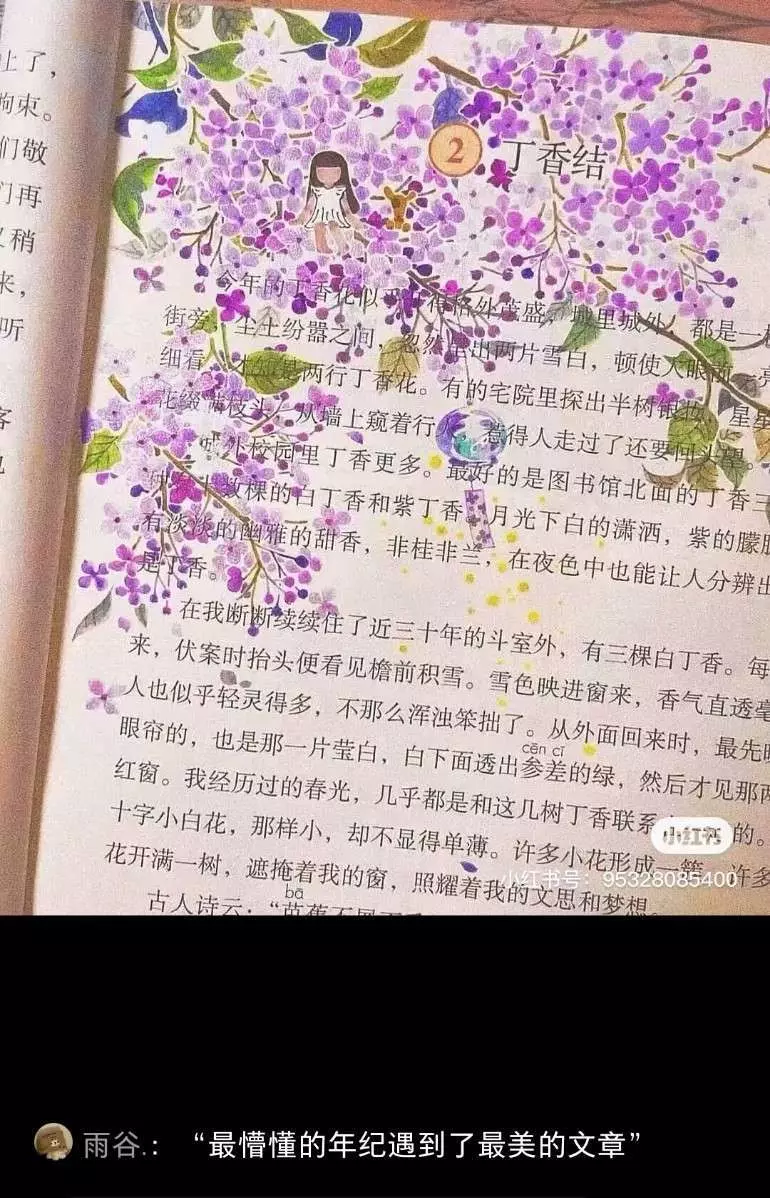 上了，
拘束。
们敬
们再
又稍
来，
听
2 丁香结
今年的丁香花似乎开得格外茂盛，城里城外，都是一
街旁，尘土纷嚣之间，忽然呈出两片雪白，顿使人眼前一亮
细看，才知是两行丁香花。有的宅院里探出半树银妆，星星
花缀满枝头，从墙上窥着行人，惹得人走过了还要回头望。
城外校园里丁香更多。最好的是图书馆北面的丁香三
十数棵的白丁香和紫丁香，月光下白的潇洒，紫的朦胧
有淡淡的幽雅的甜香，非桂非兰，在夜色中也能让人分辨出
是丁香。
在我断断续续住了近三十年的斗室外，有三棵白丁香。每
来，伏案时抬头便看见檐前积雪。雪色映进窗来，香气直透毫
人也似乎轻灵得多，不那么浑浊笨拙了。从外面回来时，最先映
cēn cī
眼帘的，也是那一片莹白，白下面透出参差的绿，然后才见那两
红窗。我经历过的春光，几乎都是和这几树丁香联系 的。
十字小白花，那样小，却不显得单薄。许多小花形成一簇，许多
花开满一树，遮掩着我的窗，照耀着我的文思和梦想。
bā
古人诗云：“芭蕉不展丁
小红书
小红书号：95328085400
雨谷.： “最懵懂的年纪遇到了最美的文章”